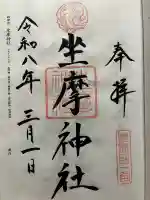 奉拝
坐摩神社
令和八年三月一日